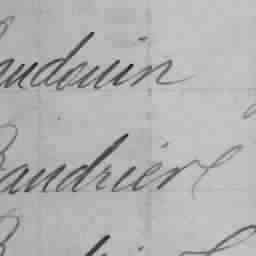 audouin
Baudrier